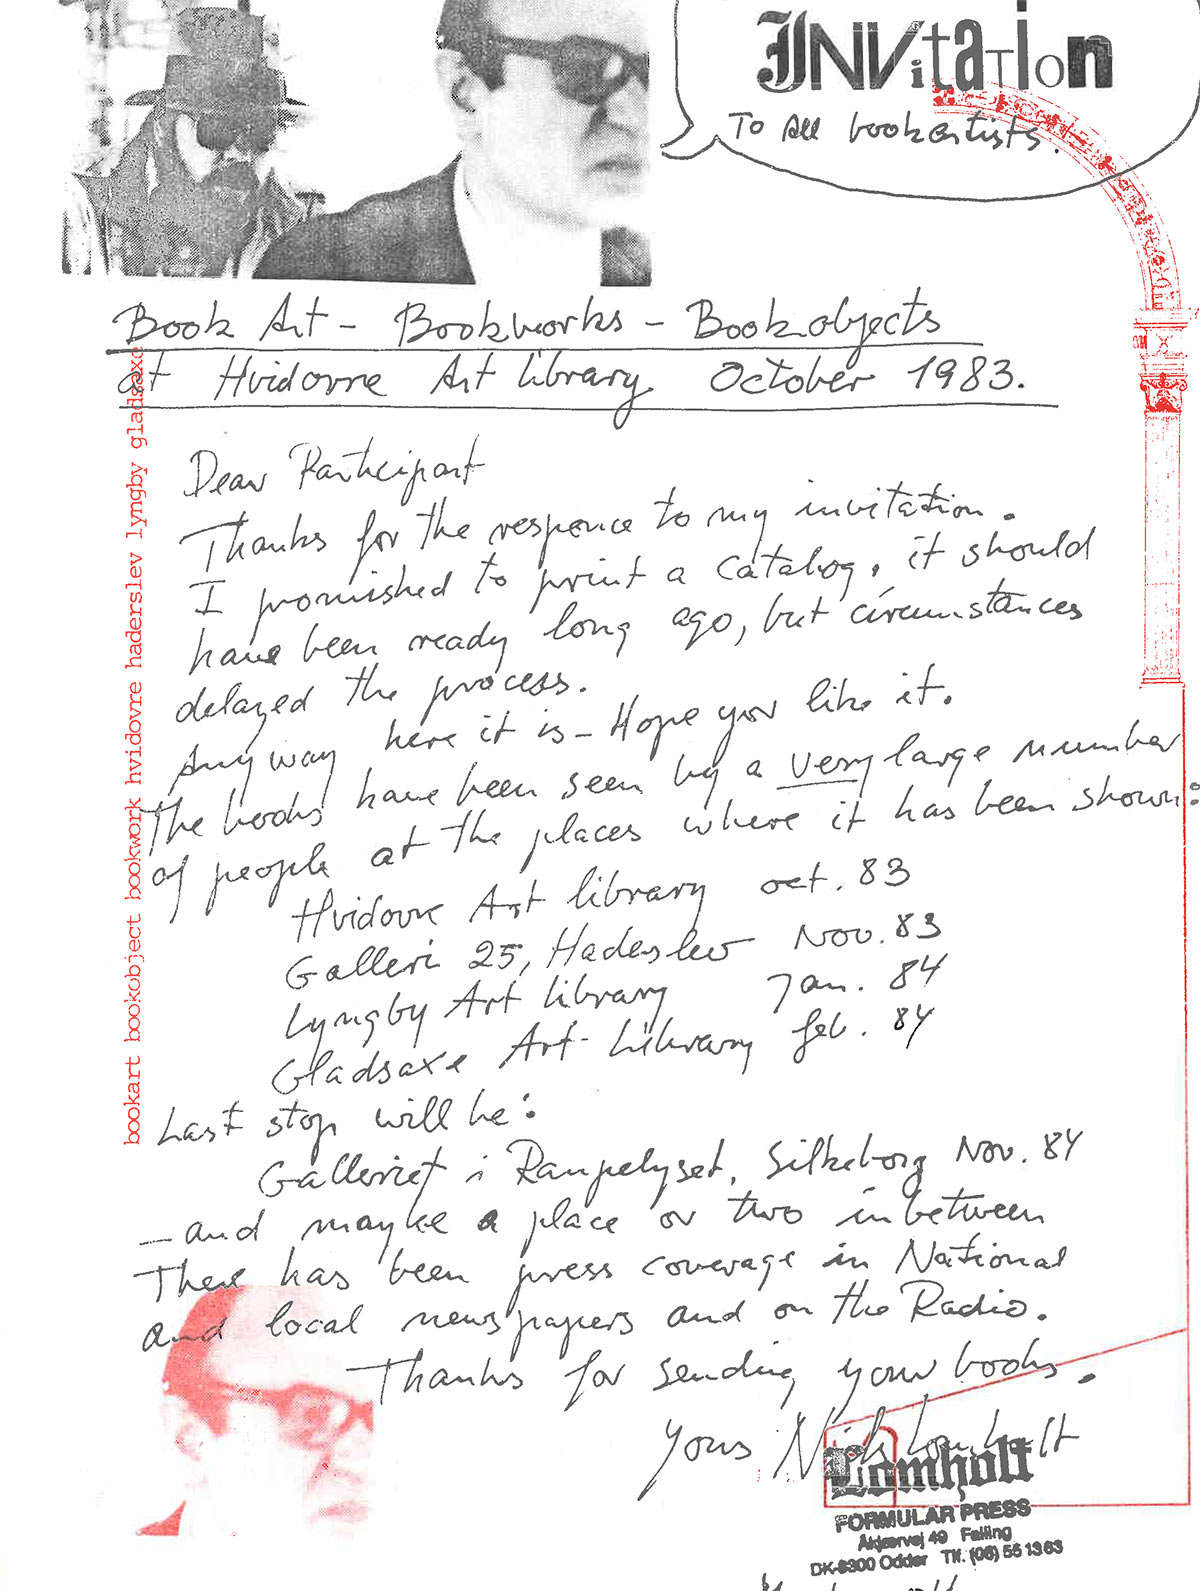 INVitaTIon
To all bookartists.
Book Art - Bookworks - Bookobjects
at Hvidovre Art library. October 1983.
Dear Participant
Thanks for the responce to my invitation.
I promished to print a catalog, it should
have been ready long ago, but circumstances
delayed the process.
Anyway here it is - Hope you like it.
The books have been seen by a very large number
of people at the places where it has been shown:
Hvidovre Art library oct. 83
Galleri 25, Haderslev Nov. 83
Lyngby Art library Jan. 84
Gladsaxe Art-Library feb. 84
Last stop will be:
Galleriet i Rampelyset, Silkeborg Nov. 84
- and maybe a place or two inbetween
There has been press coverage in National
and local newspapers and on the Radio.
Thanks for sending your books.
Yours Niels Lomholt
Lomholt
FORMULAR PRESS
Åkjærvej 49 Falling
DK-8300 Odder Tlf. (06) 55 13 63
bookart bookobject bookwork hvidovre haderslev lyngby gladsaxe